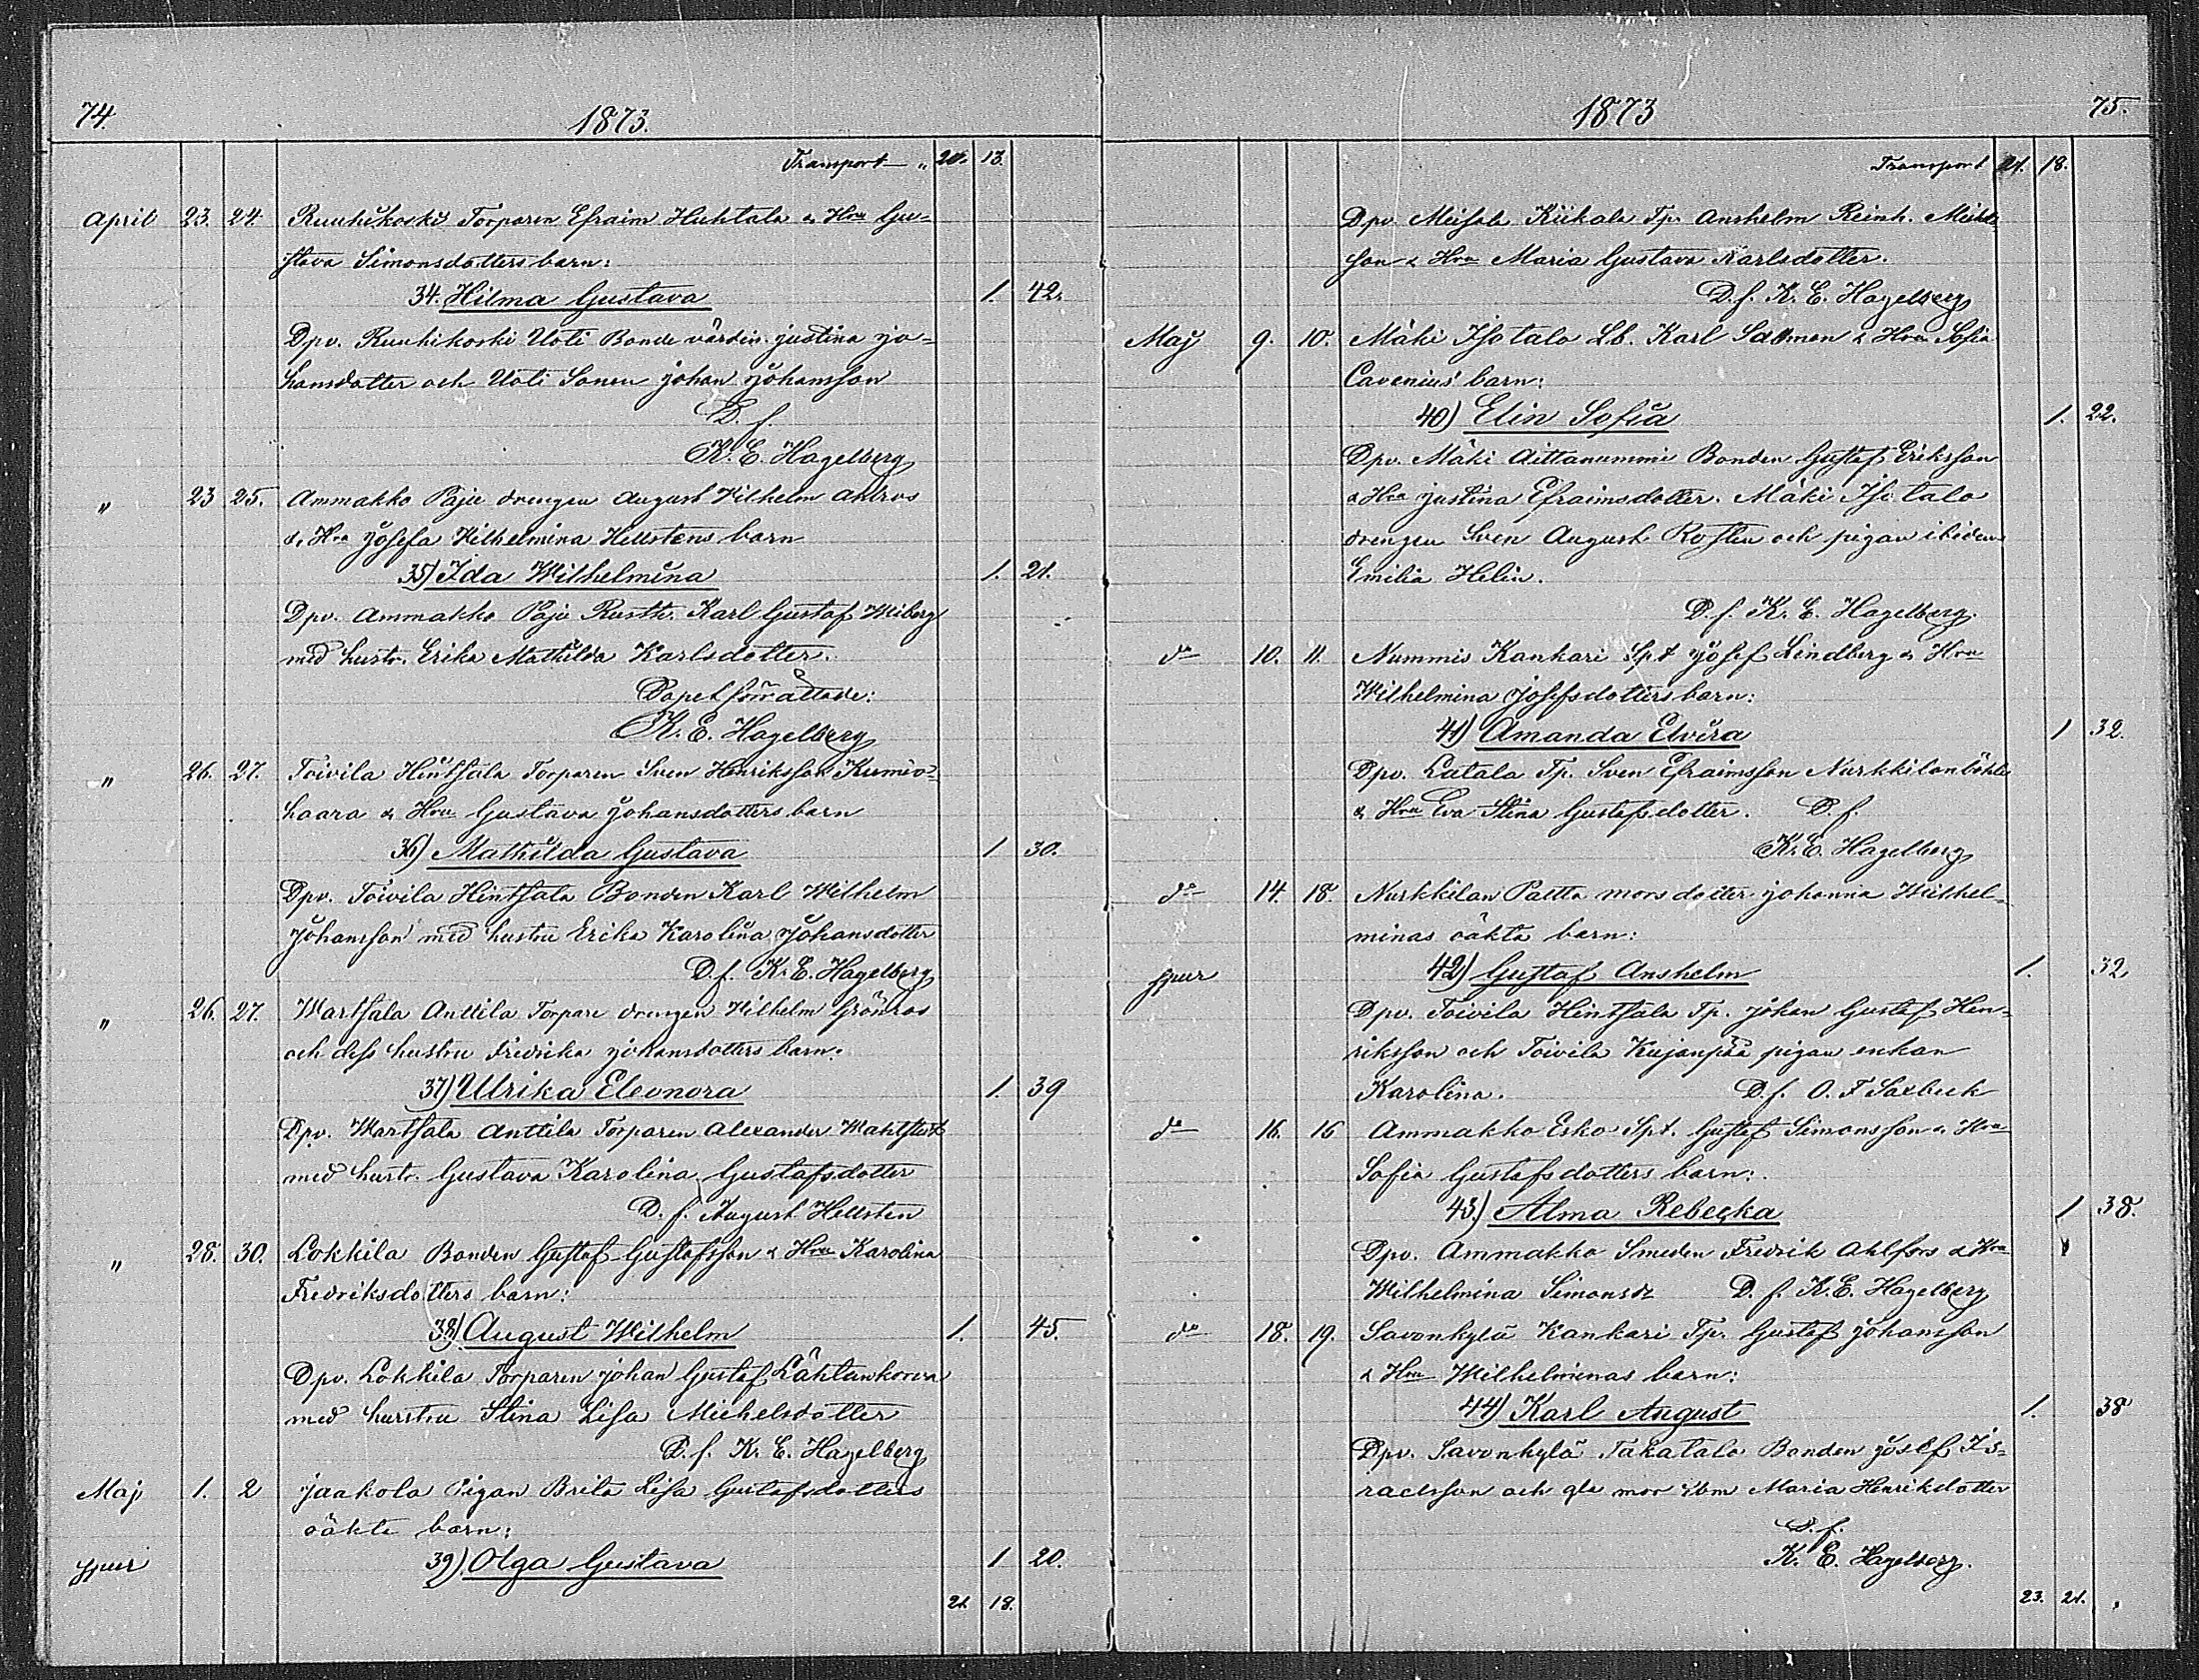 74.
1873.
Transport " 20. 13.
April 23. 24. Ruuhikoski Torparen Efraim Huhtala & Hru Gu-
stava Simonsdotters barn:
34. Hilma Gustava 1. 42.
Dpv. Ruuhikoski Uoti Bonde värdin. Justina Jo-
hansdotter och Uoti Sonen Johan Johansson
D. f.
K. E. Hagelberg
" 23 25. Ammakko Paju drengen August Wilhelm Ahlros
& Hru Josefa Wilhelmina Hellstens barn
35) Ida Wilhelmina 1. 21.
Dpv. Ammakko Paju Rusth. Karl Gustaf Wiberg
med hustr. Erika Mathilda Karlsdotter.
Dopet förrättade:
K. E. Hagelberg
" 26. 27. Toivila Hintsala Torparen Sven Henriksson Kumio-
haara & Hru Gustava Johansdotters barn
36) Mathilda Gustava 1 30.
Dpv. Toivila Hintsala Bonden Karl Wilhelm
Johansson med hustru Erika Karolina Johansdotter
D. f. K. E. Hagelberg
" 26. 27. Wartsala Anttila Torpare drengen Wilhelm Grönroos
och dess hustru Fredrika Johansdotters barn:
37) Ulrika Eleonora 1. 39
Dpv. Wartsala Anttila Torparen Alexander
med hustr. Gustava Karolina Gustafsdotter
D. f. August Hellsten
" 28. 30. Lokkila Bonden Gustaf Gustafsson & Hru Karolina
Fredriksdotters barn:
38) August Wilhelm 1. 45.
Dpv. Lokkila Torparen Johan Gustaf Lähtenkorva
med hustru Stina Lisa Michelsdotter
D. f. K. E. Hagelberg
Maj 1. 2 Jaakola Pigan Brita Lisa Gustafsdotters
oäkta barn:
39) Olga Gustava 1 20.
21. 18.
1873
75.
Transport 21. 18.
Dpv. Meisala Kiikala Tp. Anshelm Reinh. Michels
son & Hru Maria Gustava Karlsdotter.
D. f. K. E. Hagelberg
Maj 9. 10. Mäki Isotalo Lb. Karl Salomon & Hru Sofia
Cavenius' barn:
40) Elin Sofia 1. 22.
Dpv. Mäki Aittanummi Bonden Gustaf Eriksson
& Hru Justina Efraimsdotter. Mäki Isotalo
drengen Sven August Rosten och pigan ibidem
Emilia Helin.
D. f. K. E. Hagelberg.
do 10. 11. Nummis Kankari Spt Josef Lindberg & Hru
Wilhelmina Josefsdotters barn:
41) Amanda Elvira 1 32.
Dpv. Latala Tp. Sven Efraimsson
& Hru Eva Stina Gustafsdotter. D. f.
K. E. Hagelberg
do 14. 18. Nurkkilan Paltta mors dotter Johanna Wilhel-
minas oäkta barn:
42) Gustaf Anshelm 1. 32
Dpv. Toivila Hintsala Tp. Johan Gustaf Hen-
riksson och Toivila Kujanpää pigan enkan
Karolina. D. f. O. F. Saxbeck
do 16. 16 Ammakko Esko Spt. Gustaf Simonsson & Hru
Sofia Gustafsdotters barn:
43.) Alma Rebecka 1 38.
Dpv. Ammakko Smeden Fredrik Ahlfors & Hru
Wilhelmina Simonsdr D. f. K. E. Hagelberg
do 18. 19. Savonkylä Kankari Tp. Gustaf Johansson
& Hru Wilhelminas barn:
44) Karl August 1. 38
Dpv. Savonkylä Takatalo Bonden Josef Is-
raelsson och gla mor ibm Maria Henriksdotter
D. f.
K. E. Hagelberg.
23. 21.